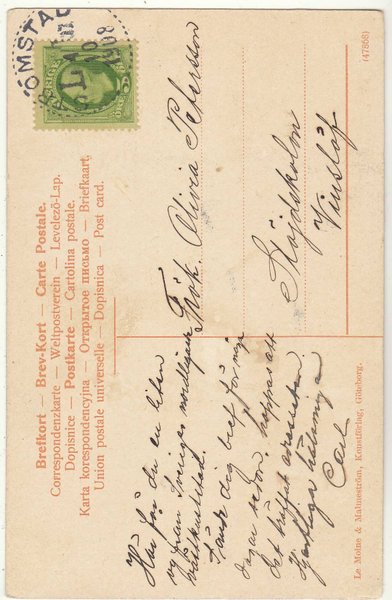 ÖMSTAD
1908
Brefkort — Brev-Kort — Carte Postale.
Correspondenzkarte — Weltpostverein — Levelező-Lap.
Dopisnice — Postkarte — Cartolina postale.
Karta korespondencyjna — Открытое письмо — Briefkaart,
Union postale universelle — Dopisnica — Post card.
Här får du en liten
vy från Sveriges
dig bref för
dagar sedan, hoppas att
det
Hjertliga
Carl
Frök. Olivia Petersson
Slöjdskolan
Vinslöf
(47868)
Le Moine & Malmeström, Konstförlag, Göteborg.